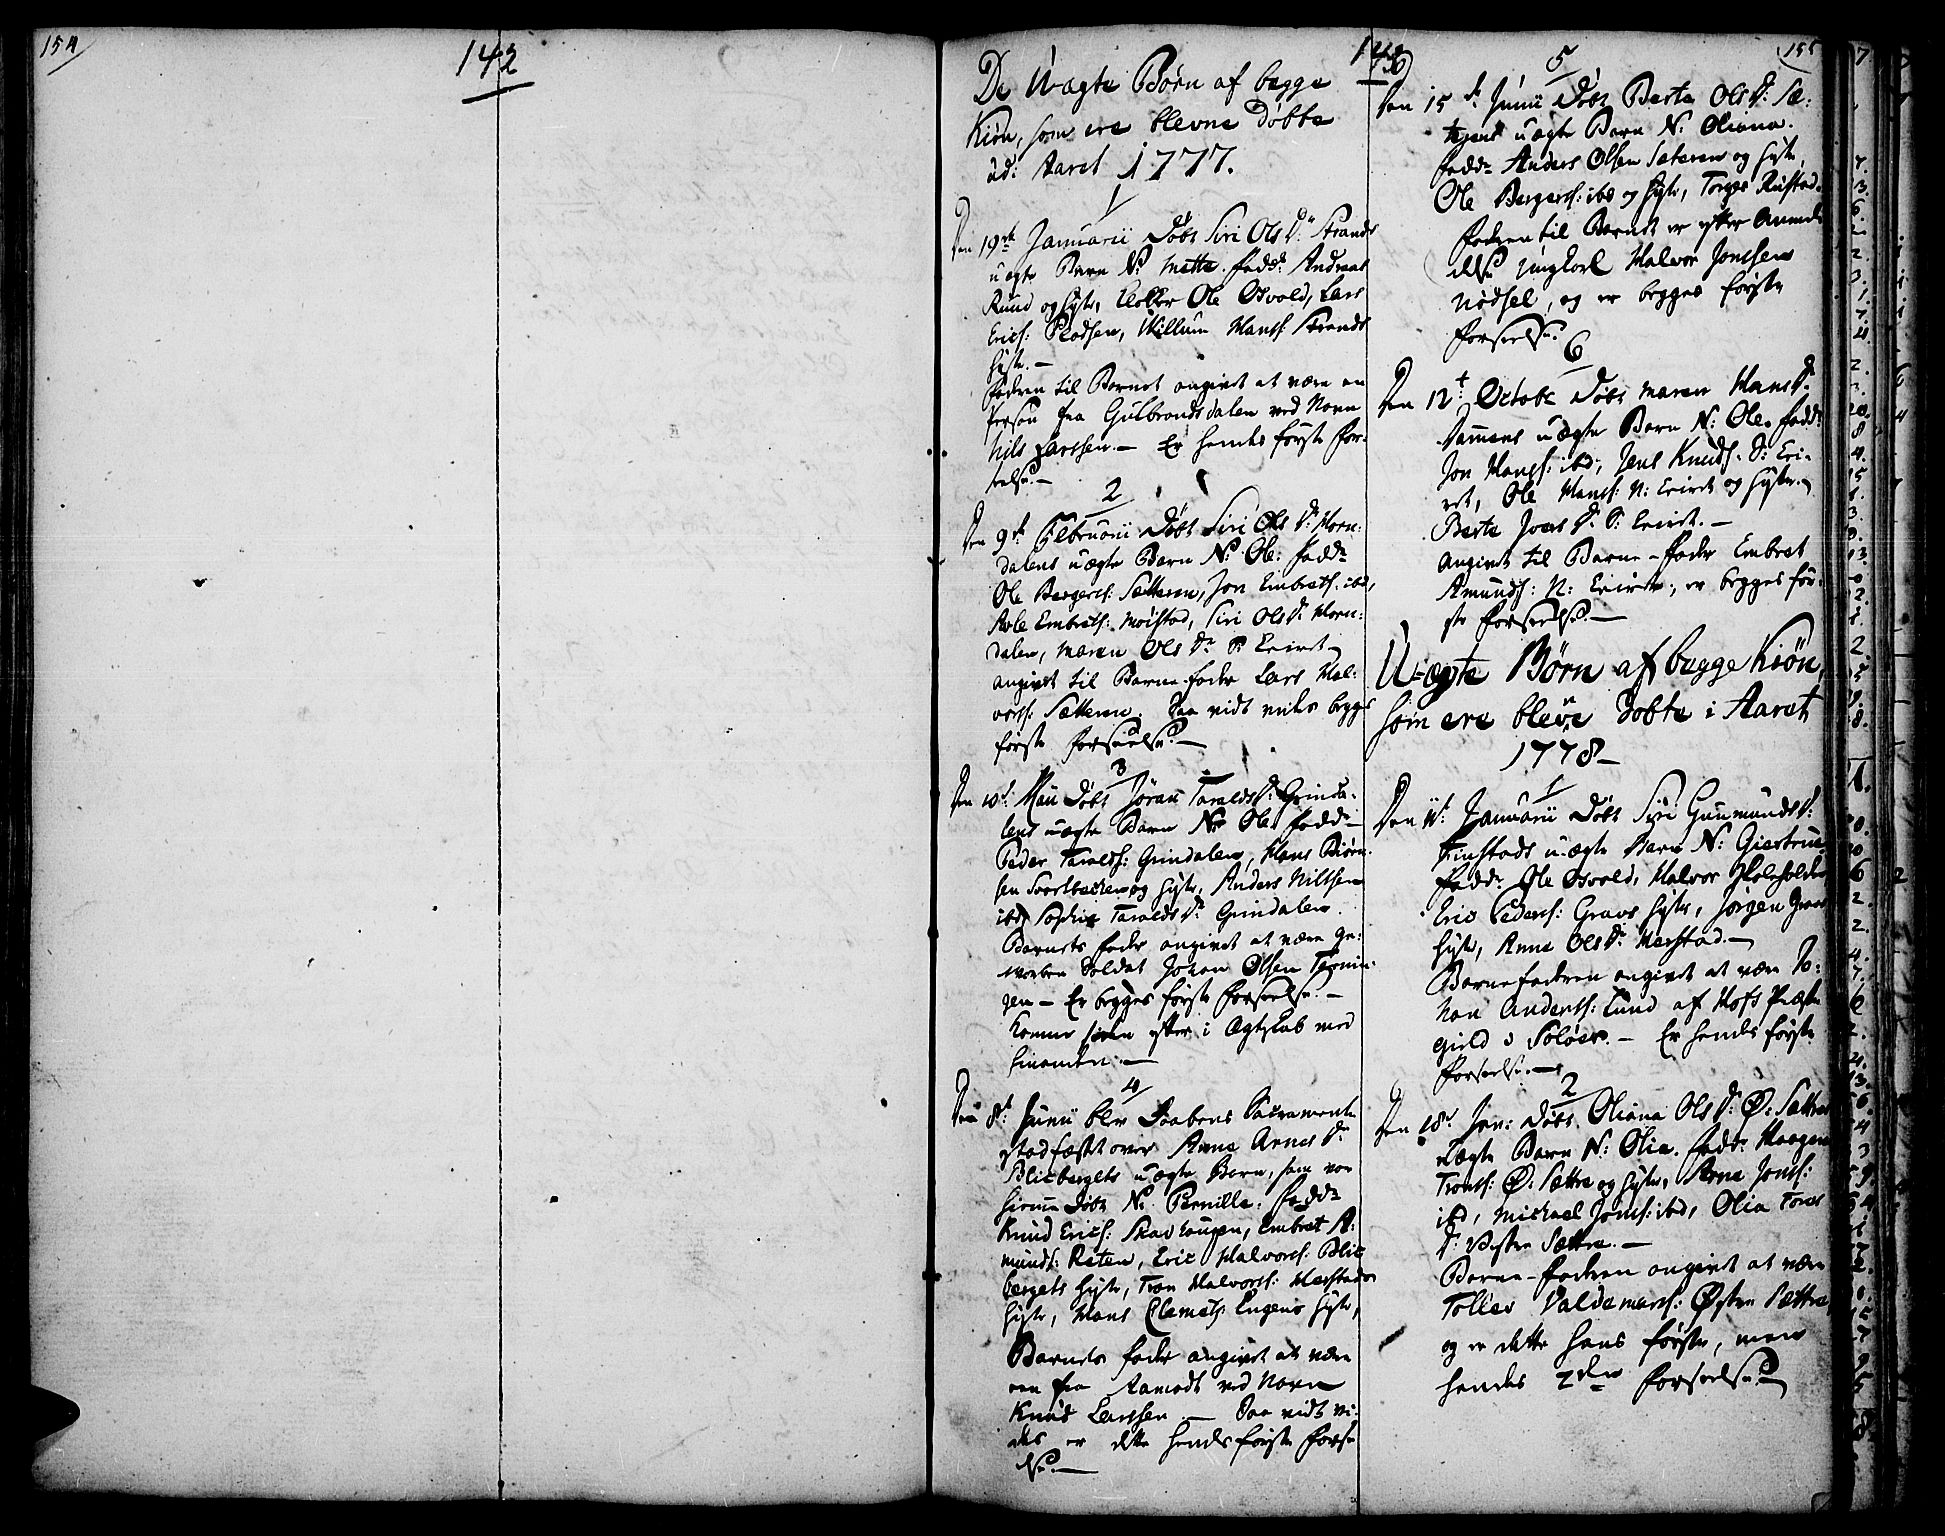 154
142
De Uægte Børn af begge
Kiøn, som ere blevne Døbte
ud: Aaret 1777.
1
Den 19de Januarii Døbt Siri Ols Dr Strands
uægte Barn N: Mette. Fadd: Andreas
Rund og Hustr, Klokker Ole Osvold, Lars
Erichs: Women, Willum Hans: Strands
Hustr.—
Fadren til Barnet angivet at være en
Person fra Gulbrandsdalen ved Navn
Nils Larssen.— Er hendes første For-
seelse.—
2
Den 9de Februarii Døbt Siri Ols Dr Horn:
dalens uægte Barn N: Ole. Fadd:
Ole Bergers: Sætteren, Jon Embrets: ibd,
Embrets: Moistad, Siri Ols Dr Horn:
dalen, Maren Ols Dr S: Eriset
angivet til Barne-Fader Lars Hal:
vors: Sætteren. Saa vidt vides begges
første Forseelse.—
3
Den 10de Maii Døbt Jøran Taralds Dr Grinda-
lens uægte Barn N: Ole. Fadd:
Peder Taralds: Grindalen, Hans Biørn-
sen Svartbecken og Hustr, Anders Nilssen
ibd, Sophie Taralds Dr Grindalen.
Barnets Fader angivet at være ge-
worben Soldat Johan Olsen Ternin-
gen— Er begges første Forseelse.—
Komme siden efter i Ægteskab med
hinanden.—
4
Den 8de Junii blev Daabens Sacramente
stadfæstet over Anne Arnes Dr
Blichergets uægte Barn, som var
hiemme Døbt N: Pernille. Fadd:
Knud Erichs: Skavhougen, Embret A:
munds: Røten, Eric Halvors: Blic
bergets Hustr, Tron Halvors: Herstads
Hustr, Hans Clemets: Engens Hustr,
Barnets Fader angivet at være
en fra Aamodt ved Navn
Knud Larssen.— Saa vidt vi-
des er dette hendes første Forse
else.—
143
155
5
Den 15de Junii Døbt Berte Ols Dr Sæ:
terens uægte Barn N: Oliana.
Fadd: Anders Olsen Sæteren og Hustr,
Ole Bergers: ibd og Hustr, Torger Rustad.
Fadren til Barnet er efter Anmel-
delse Ungkarl Halvor Jonssen
Nødsel, og er begges første
Forseelse.
6
Den 12te Octobr Døbt Maren Hans Dr
Dammens uægte Barn N: Ole. Fadd:
Jon Hans: ibd, Jens Knuds: S: Eri-
set, Ole Hans: N: Eriset og Hustr.
Berte Joens Dr S: Eriset.—
angivet til Barne-Fader Embret
Amunds: N: Eriset; er begges før-
ste Forseelse.—
U-ægte Børn af begge Kiøn,
som ere blevne Døbte i Aaret
1778—
1
Den 11te Januarii Døbt Siri Gunmunds Dr
Finstads uægte Barn N: Giertrue
Fadd: Ole Osvold, Halvor Gloholder
Eric Peders: Graver Hustr, Jørgen Graver
Hustr, Anne Ols Dr Harstad.—
Barnefadren angivet at være Jo-
han Anders: Lund af Hofs Præste
gield i Soløer.— Er hendes første
Forseelse.—
2
Den 18de Jan: Døbt Oliana Ols Dr Ø: Sættres
uægte Barn N: Olia. Fadd: Haagen
Trons: Ø: Sættre og Hustr, Arne Jons:
ibd, Michael Jons: ibd, Olia Tores
Dr Vester Sættre.—
Barne-Fadren angivet at være
Tollev Valdemars: Øster Sættre,
og er dette hans første, men
hendes 2den Forseelse.—